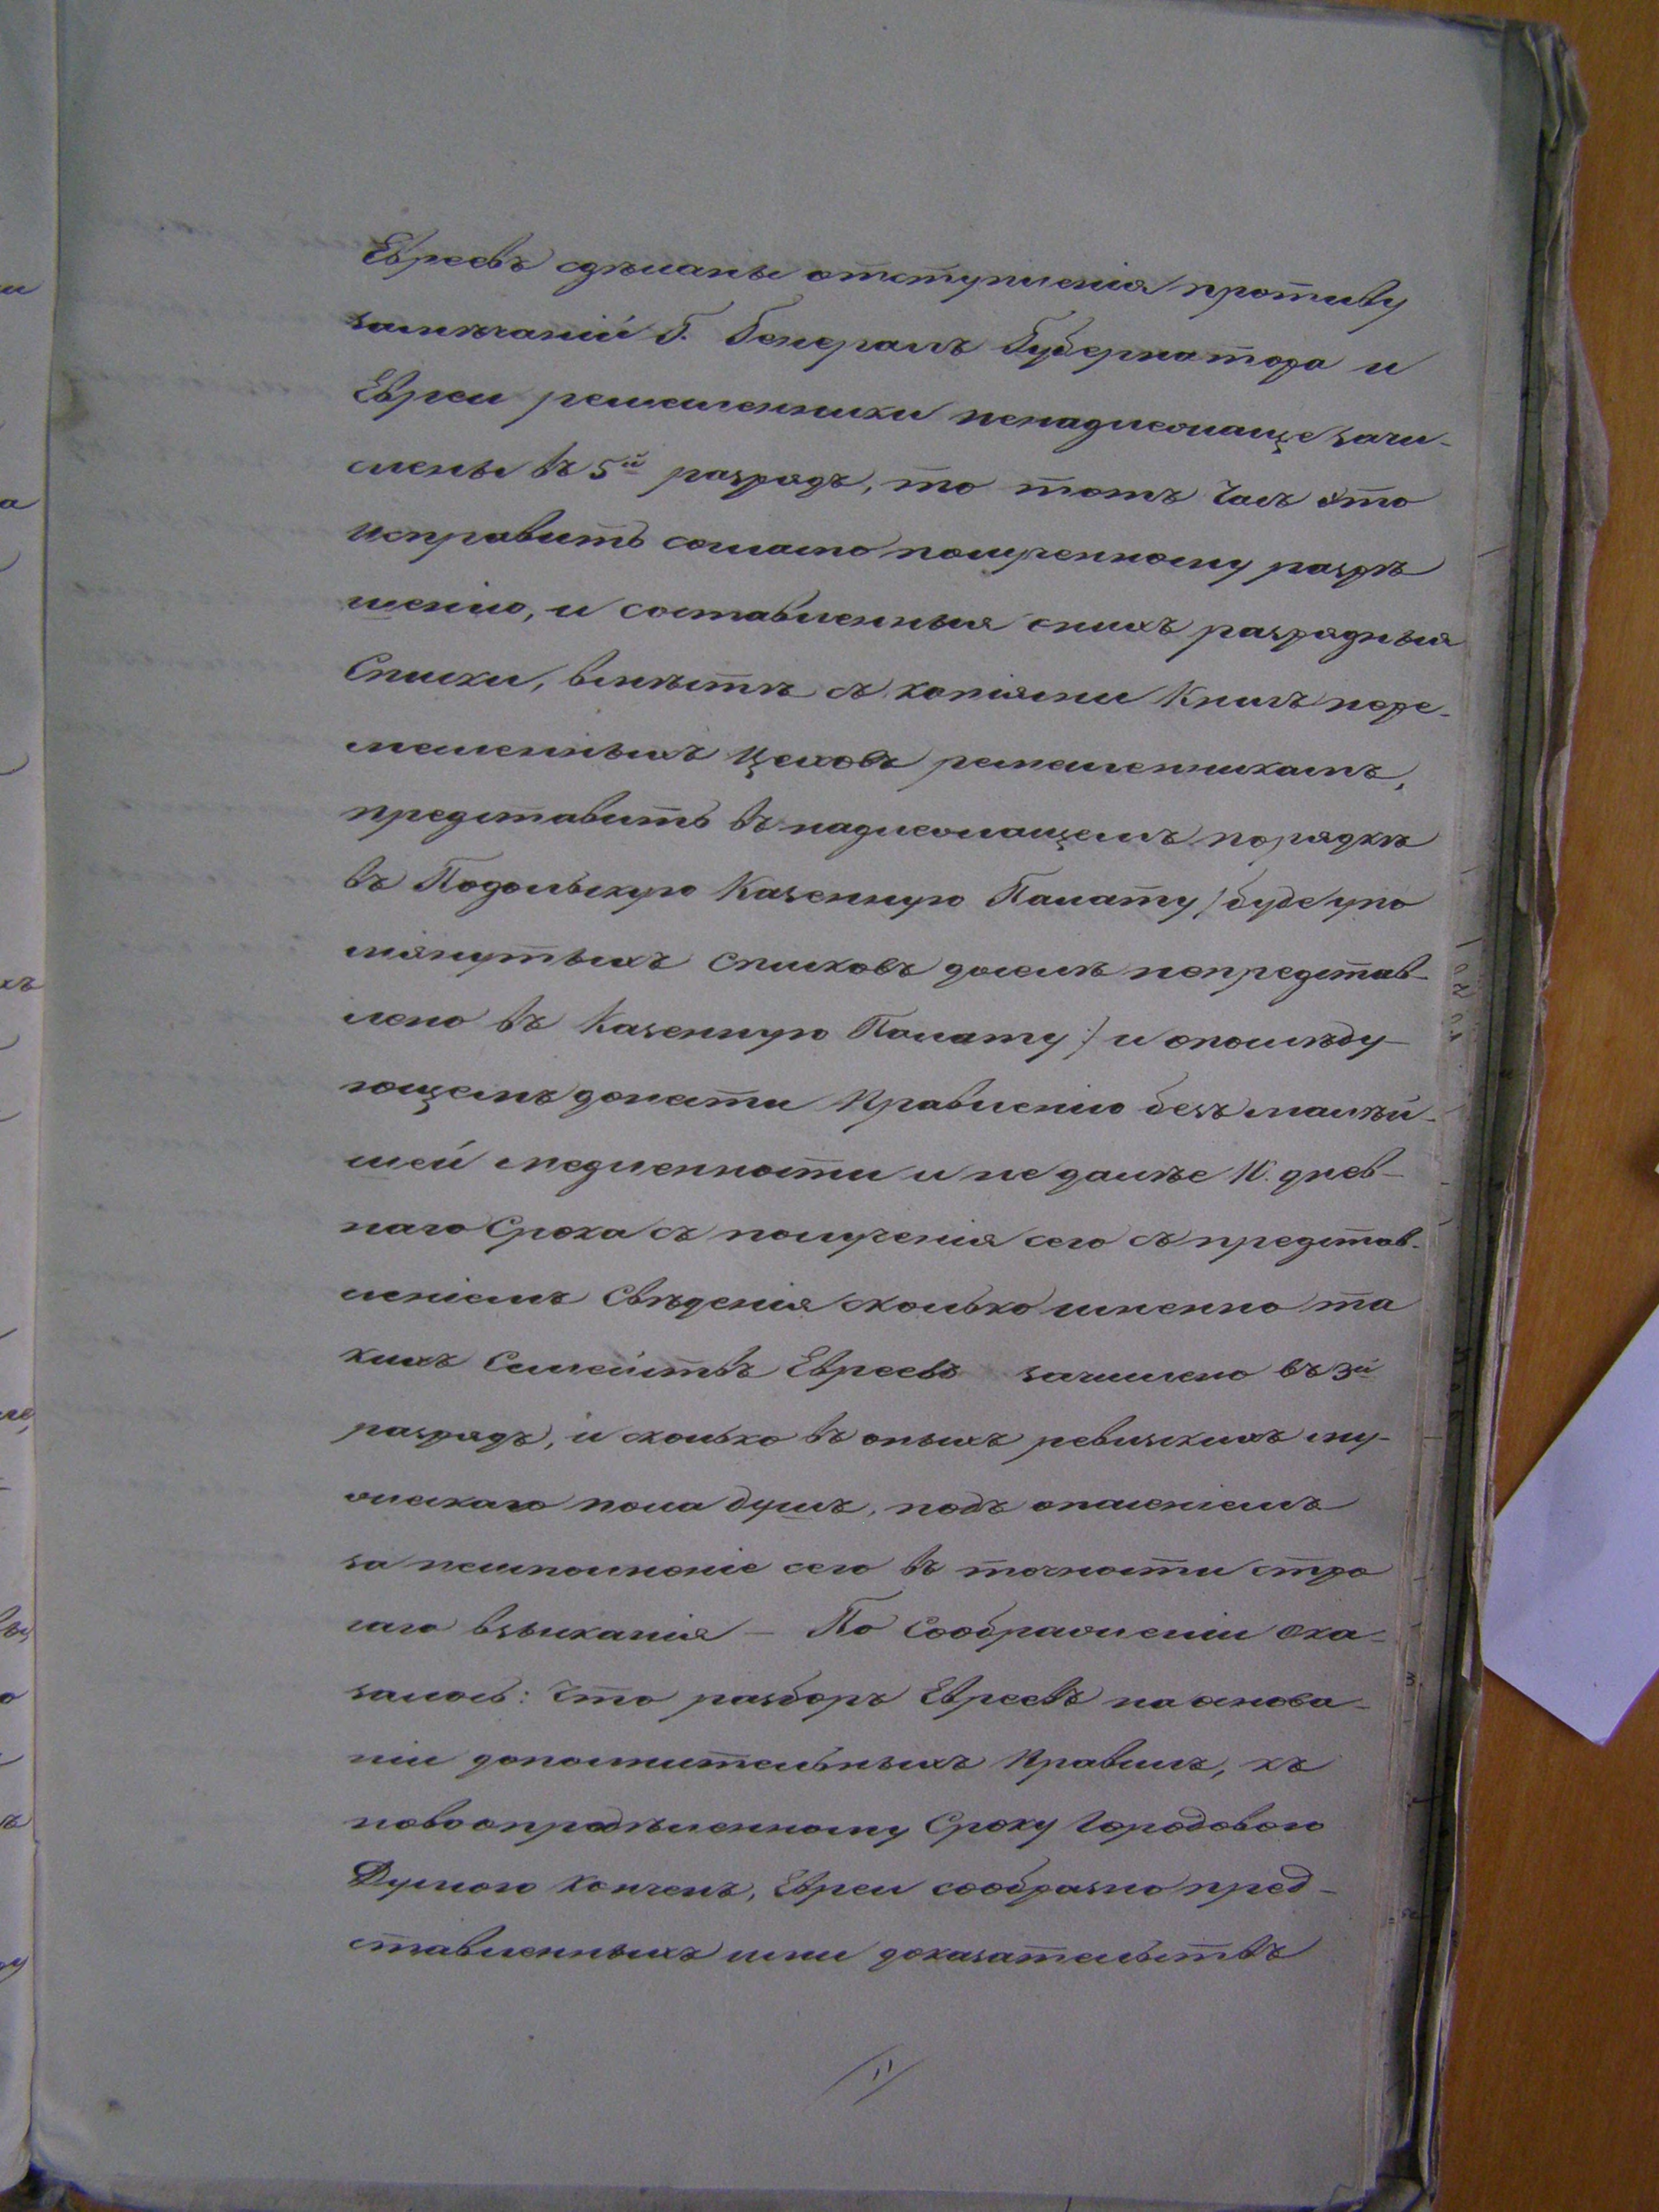 Евреевъ сдѣланы отступленія противу
замѣчаній Г. Генералъ Губернатора и
Евреи ремесленники ненадлежаще зачи-
слены въ 5й разрядъ, то тотъ часъ это
исправить согласно полученному разрѣ
шенію, и составленныя снихъ разрядныя
Списки, вмѣстѣ съ копіями Книгъ поре-
месленныхъ цеховъ ремесленникамъ,
представить въ надлежащемъ порядкѣ
въ Подольскую Казенную Палату /:буде упо
мянутыхъ списковъ доселѣ непредстав-
лено въ Казенную Палату:/ и опослѣду-
ющемъ донести Правленію безъ малѣй-
шей медленности и не далѣе 10. днев-
наго Срока съ полученія сего съ представ-
леніемъ Свѣденія сколько именно та
кихъ Семействъ Евреевъ зачислено въ 3й
разрядъ, и сколько въ оныхъ ревизскихъ му-
жескаго пола душъ, подъ опасеніемъ
за неисполненіе сего въ точности стро
гаго взысканія – По Соображеніи Ока-
залось: Что разборъ Евреевъ на основа-
ніи дополнительныхъ Правилъ, къ
новоопредѣленному Сроку Городовою
Думою Конченъ, Евреи сообразно пред-
ставленныхъ ими доказательствъ